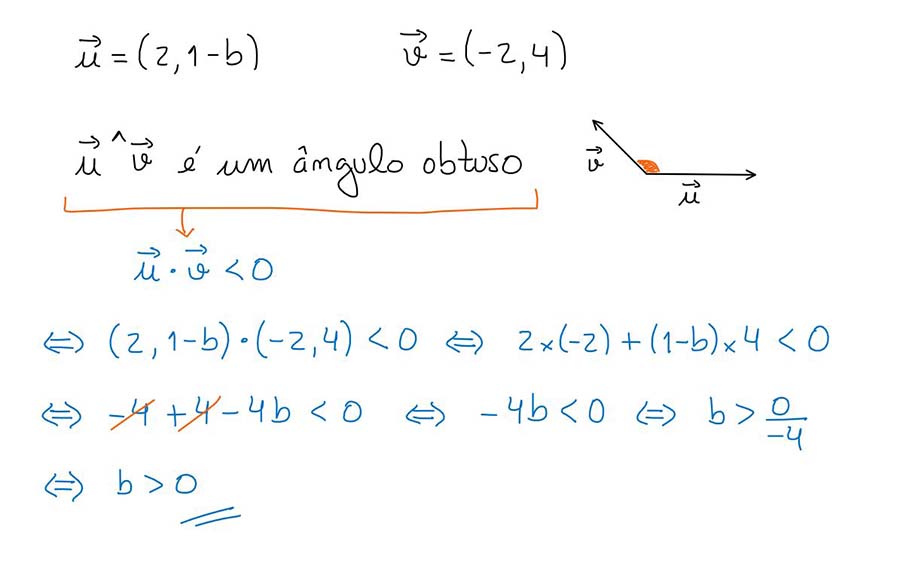 u⃗ = (2, 1-b) v⃗ = (-2, 4)
u⃗ ^ v⃗ é um ângulo obtuso
v⃗
u⃗
u⃗ · v⃗ < 0
⇔ (2, 1-b) · (-2, 4) < 0 ⇔ 2×(-2) + (1-b)×4 < 0
⇔ -4 + 4 - 4b < 0 ⇔ -4b < 0 ⇔ b > 0/-4
⇔ b > 0